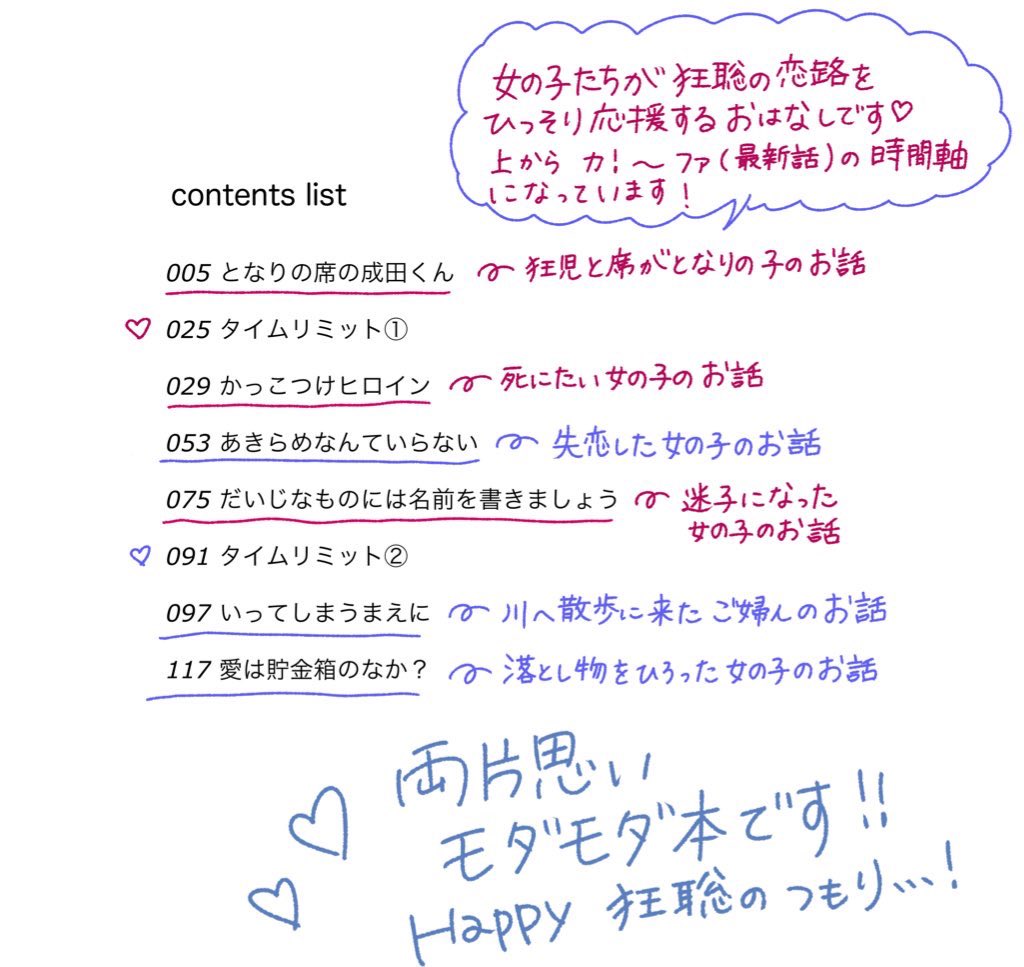 女の子たちが狂聡の恋路を
ひっそり応援するおはなしです♡
上から カ!〜ファ(最新話)の時間軸
になっています!
contents list
005 となりの席の成田くん 狂児と席がとなりの子のお話
♡ 025 タイムリミット①
029 かっこつけヒロイン 死にたい女の子のお話
053 あきらめなんていらない 失恋した女の子のお話
075 だいじなものには名前を書きましょう 迷子になった
女の子のお話
♡ 091 タイムリミット②
097 いってしまうまえに 川へ散歩に来たご婦人のお話
117 愛は貯金箱のなか? 落とし物をひろった女の子のお話
両片思い
モダモダ本です!!
Happy 狂聡のつもり…!